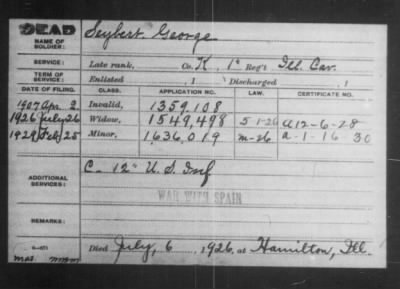 DEAD
NAME OF SOLDIER: Seybert George
SERVICE: Late rank, Co. K, 1" Reg't Ill. Cav.
TERM OF SERVICE: Enlisted , 1 Discharged , 1
DATE OF FILING. CLASS. APPLICATION NO. LAW. CERTIFICATE NO.
1907 Apr 2 Invalid, 1359,108
1926 July 26 Widow, 1549,498 5-1-26 A12-6-28
1929 Feb 25 Minor, 1636,019 m-26 a-1-16 30
ADDITIONAL SERVICES: C- 12" U. S. Inf
WAR WITH SPAIN
REMARKS:
Died July, 6 1926, at Hamilton, Ill.